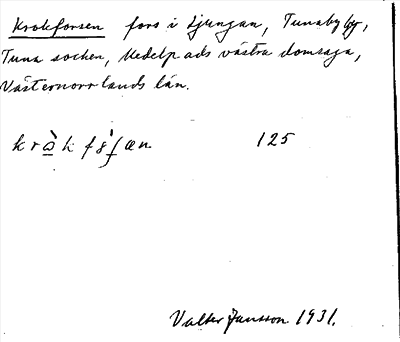 Krokforsen fors i Ljungan, Tunaby by,
Tuna socken, Medelpads västra domsaga,
Västernorrlands län.
125
Valter Jansson 1931.